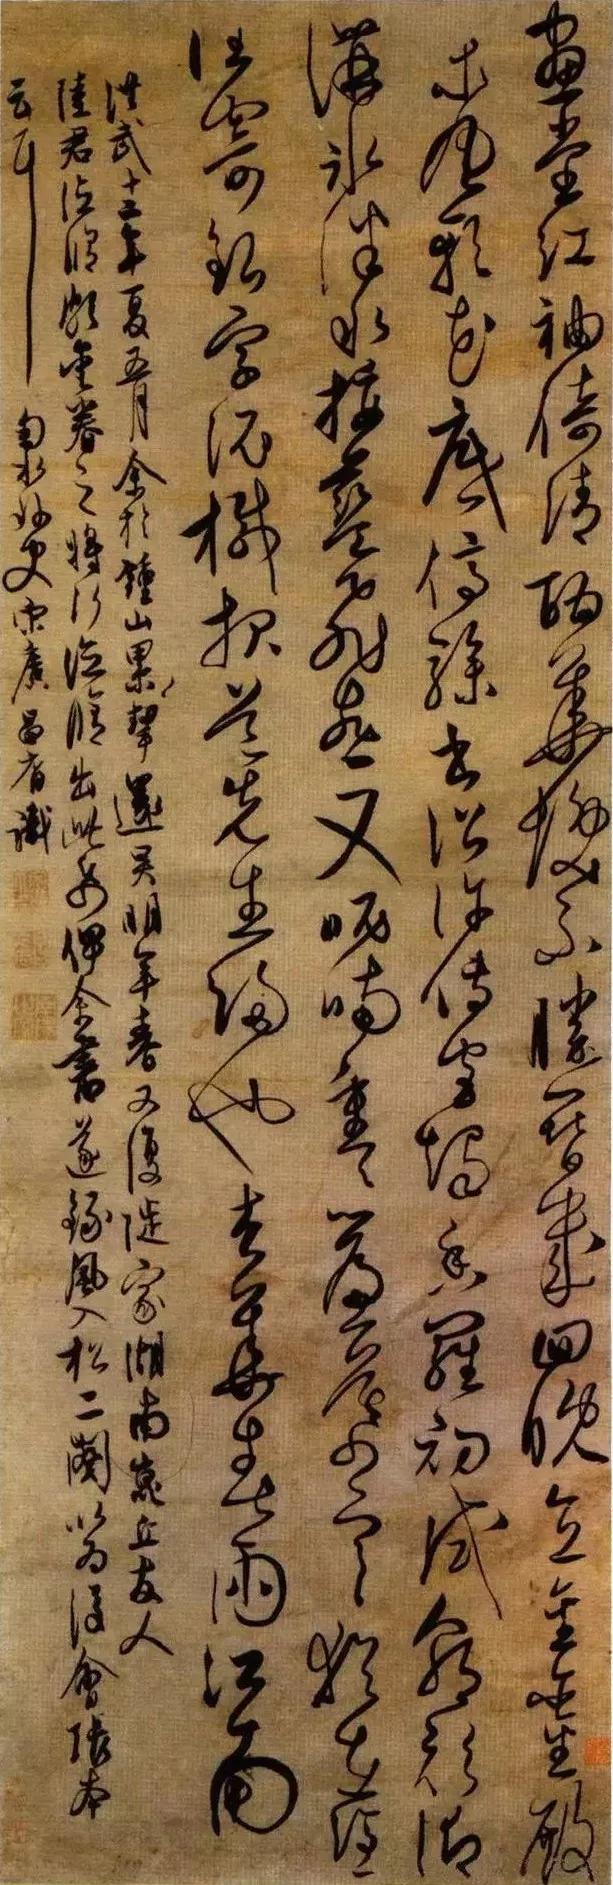 畫堂紅袖倚清酣華髮不勝簪幾回晚立金鑾殿
東風軟花底停驂書詔許傳宮燭香羅初試朝衫御
溝冰泮水挼藍飛燕又呢喃重重簾幕寒猶在憑
誰寄銀字泥緘報道先生歸也杏華春雨江南
洪武十三年夏五月余於鍾山累挈還吳明年春又復徙家湖南嵩丘友人
陸君德修頗重眷之將行德修出此紙俾余書遂錄風入松二闋以為後會張本
云耳 匊水外史宋廣昌裔識